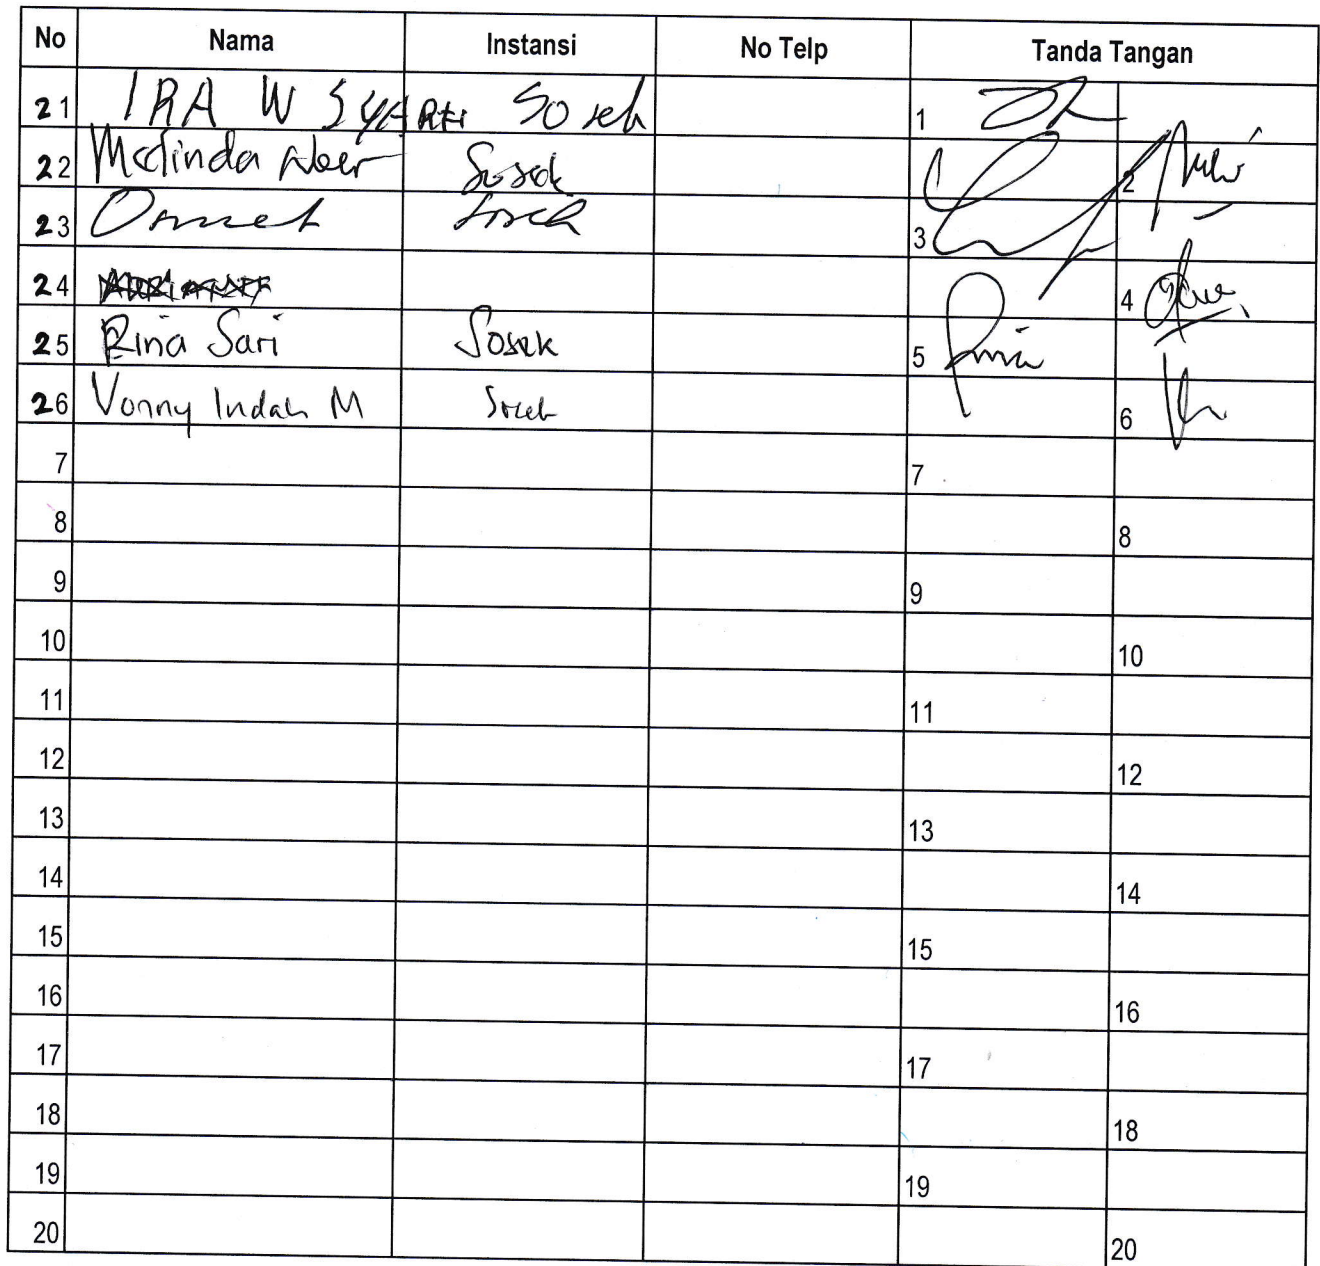 No Nama Instansi No Telp Tanda Tangan
21 IRA W SYARTI Sosek 1
22 Melinda Noer Sosek 2
23 Sosek 3
24 4
25 Rina Sari Sosek 5 Rina
26 Vonny Indah M Sosek 6
7 7
8 8
9 9
10 10
11 11
12 12
13 13
14 14
15 15
16 16
17 17
18 18
19 19
20 20